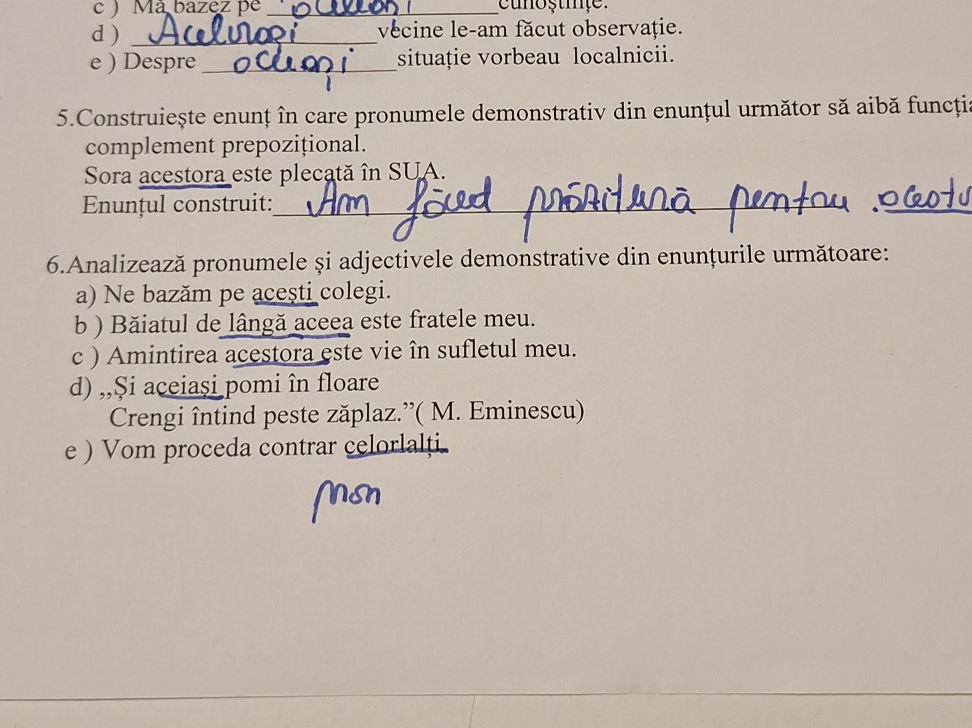 c ) Mă bazez pe aceleași cunoștințe.
d ) Aceleiași vecine le-am făcut observație.
e ) Despre aceeași situație vorbeau localnicii.
5.Construiește enunț în care pronumele demonstrativ din enunțul următor să aibă funcția
complement prepozițional.
Sora acestora este plecată în SUA.
Enunțul construit: Am făcut prăjitură pentru
6.Analizează pronumele și adjectivele demonstrative din enunțurile următoare:
a) Ne bazăm pe acești colegi.
b ) Băiatul de lângă aceea este fratele meu.
c ) Amintirea acestora este vie în sufletul meu.
d) ,,Și aceiași pomi în floare
Crengi întind peste zăplaz.”( M. Eminescu)
e ) Vom proceda contrar celorlalți.